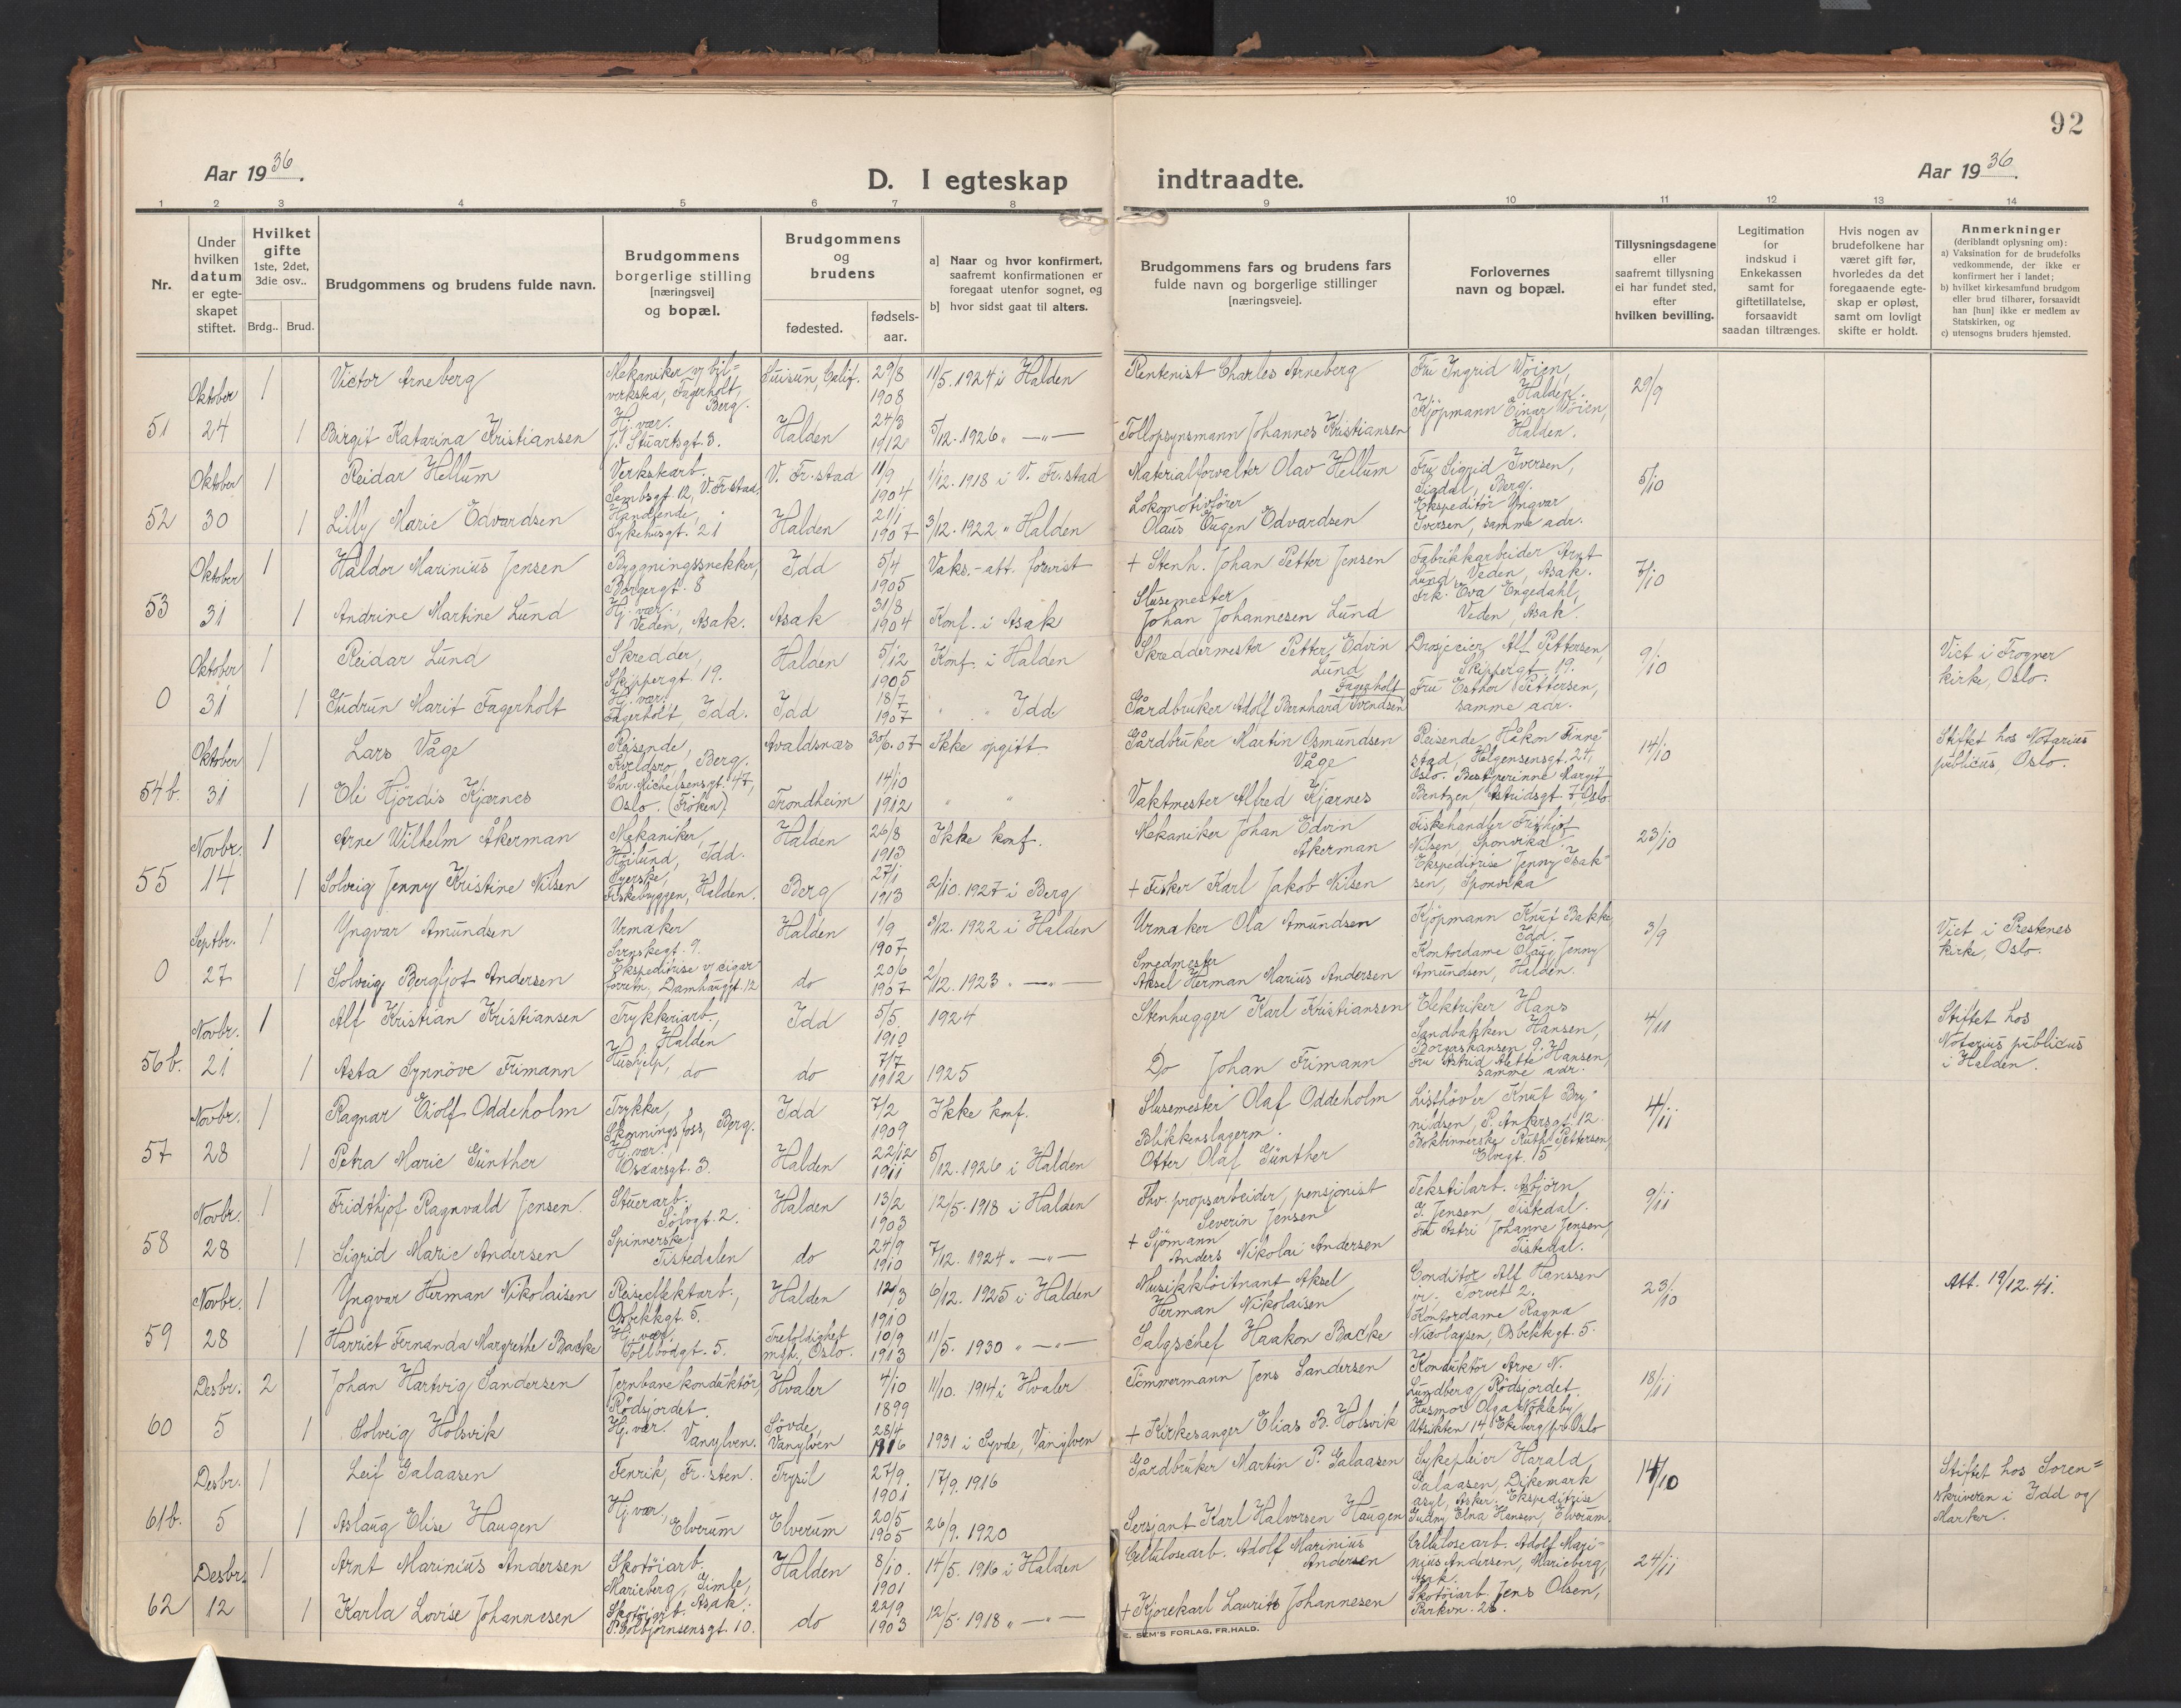 92
Aar 1936.
D. I egteskap indtraadte.
Aar 1936.
1 2 3 4 5 6 7 8 9 10 11 12 13 14
Nr.
Under
hvilken
datum
er egte-
skapet
stiftet.
Hvilket
gifte
1ste, 2det,
3die osv..
Brdg.. Brud.
Brudgommens og brudens fulde navn.
Brudgommens
borgerlige stilling
[næringsvei]
og bopæl.
Brudgommens
og
brudens
fødested.
fødsels-
aar.
a] Naar og hvor konfirmert,
saafremt konfirmationen er
foregaat utenfor sognet, og
b] hvor sidst gaat til alters.
Brudgommens fars og brudens fars
fulde navn og borgerlige stillinger
[næringsveie].
Forlovernes
navn og bopæl.
Tillysningsdagene
eller
saafremt tillysning
ei har fundet sted,
efter
hvilken bevilling.
Legitimation
for
indskud i
Enkekassen
samt for
giftetillatelse,
forsaavidt
saadan tiltrænges.
Hvis nogen av
brudefolkene har
været gift før,
hvorledes da det
foregaaende egte-
skap er opløst,
samt om lovligt
skifte er holdt.
Anmerkninger
(deriblandt oplysning om):
a) Vaksination for de brudefolks
vedkommende, der ikke er
konfirmert her i landet;
b) hvilket kirkesamfund brudgom
eller brud tilhører, forsaavidt
han [hun] ikke er medlem av
Statskirken, og
c) utensogns bruders hjemsted.
51
Oktober
24
1
Victor Arneberg
Mekaniker v/ bil-
verksta, Fagerholt,
Berg.
Suisun, Calif.
29/8
1908
11/5. 1924 i Halden
Rentenist Charles Arneberg
Fru Ingrid Wöien,
Halden.
Kjöpmann Einar Wöien,
Halden.
29/9
1
Birgit Katarina Kristiansen
Hj. vær.
J. Stuartsgt. 3.
Halden
24/3
1912
5/12. 1926 " —"—
Tollopsynsmann Johannes Kristiansen
52
Oktober
30
1
Reidar Hellum
Verkstarb.
Sembsgt. 12, V. Fr.stad.
V. Fr.stad
11/9
1904
1/12. 1918 i V. Fr.stad
Materialforvalter Olav Hellum
Fru Sigrid Iversen,
Sigdal, Berg.
Ekspeditör Yngvar
Iversen, samme adr.
5/10
1
Lilly Marie Edvardsen
Handlende,
Sykehusgt. 21
Halden
21/1
1907
3/12. 1922 " Halden
Lokomotivförer
Olaus Eugen Edvardsen
53
Oktober
31
1
Haldor Marinius Jensen
Byggningssnekker,
Borgergt. 8
Idd
5/4
1905
Vaks.-att. forevist
+ Stenh. Johan Petter Jensen
Fabrikkarbeider Arnt
Lund, Veden, Asak.
Frk. Eva Engedahl,
Veden, Asak.
7/10
1
Andrine Martine Lund
Hj. vær.
Veden, Asak.
Asak
31/8
1904
Konf. i Asak
Slusemester
Johan Johannesen Lund
0
Oktober
31
1
Reidar Lund
Skredder,
Skippergt. 19.
Halden
5/12
1905
Konf. i Halden
Skreddermester Petter Edvin
Lund
Drosjeeier Alf Pettersen,
Skippergt. 19.
Fru Esther Pettersen,
samme adr.
9/10
Viet i Frogner
kirke, Oslo.
1
Gudrun Marit Fagerholt
Hj. vær.
Fagerholt, Idd.
Idd
18/7
1907
" " Idd.
Fagerholt
Gårdbruker Adolf Bernhard Svendsen
54b.
Oktober
31
1
Lars Våge
Reisende,
Kveldsro, Berg.
Avaldsnæs
30/6. 07
Ikke opgitt.
Gårdbruker Martin Osmundsen
Våge
Reisende Håkon Finne-
stad, Helgensensgt. 24,
Oslo. Bestyrerinne Margit
Bentzen, Astridsgt. 7, Oslo.
14/10
Stiftet hos Notarius
publicus, Oslo.
1
Eli Hjördis Kjærnes
Chr. Michelsensgt. 47,
Oslo. (Fröken)
Trondheim
14/10
1912
" "
Vaktmester Alfred Kjærnes
55
Novbr.
14
1
Arne Wilhelm Åkerman
Mekaniker,
Höilund, Idd.
Halden
26/8
1913
Ikke konf.
Mekaniker Johan Edvin
Åkerman
Fiskehandler Frithjof
Nilsen, Sponvika.
Ekspeditrise Jenny Isak-
sen, Sponvika
23/10
1
Solveig Jenny Kristine Nilsen
Syerske,
Fiskebryggen, Halden.
Berg
27/1
1913
2/10. 1927 i Berg
+ Fisker Karl Jakob Nilsen
0
Septbr.
27
1
Yngvar Amundsen
Urmaker
Svenskegt. 9.
Halden
1/9
1907
3/12. 1922 i Halden
Urmaker Ola Amundsen
Kjöpmann Knut Bakke,
Idd.
Kontordame Olaug Jenny
Amundsen, Halden.
3/9
Viet i Prestenes
kirke, Oslo.
1
Solveig Bergljot Andersen
Ekspeditrise v/ cigar
forretn. Damhauggt. 12
do
20/6
1907
2/12. 1923 " —"—
Smedmester
Aksel Herman Marius Andersen
56b.
Novbr.
21
1
Alf Kristian Kristiansen
Trykkeriarb.,
Halden
Idd
5/5
1910
1924
Stenhugger Karl Kristiansen
Elektriker Hans
Sandbakken Hansen,
Borgerskansen 9.
Fru Astrid Alette Hansen,
samme adr.
4/11
Stiftet hos
Notarius publicus
i Halden.
1
Asta Synnöve Frimann
Hushjelp,
do
do
7/7
1912
1925
Do Johan Frimann
57
Novbr.
28
1
Ragnar Eiolf Oddeholm
Trykker,
Skonningsfoss, Berg.
Idd
7/2
1909
Ikke konf.
Slusemester Olaf Oddeholm
Listhöver Knut Bry-
nildsen, P. Ankersgt. 12.
Bokbinnerske Ruth Pettersen,
Elvegt. 15
4/11
1
Petra Marie Günther
Hj. vær.
Oscarsgt. 3.
Halden
22/12
1911
5/12. 1926 i Halden
Blikkenslagerm.
Otter Olaf Günther
58
Novbr.
28
1
Fridthjof Ragnvald Jensen.
Stuerarb.
Sölvgt. 2.
Halden
13/2
1903
12/5. 1918 i Halden
Fhv. propsarbeider, pensjonist
Severin Jensen
Tekstilarb. Asbjörn
J. Jensen, Tistedal.
Fru Astri Johanne Jensen,
Tistedal.
9/11
1
Sigrid Marie Andersen
Spinnerske
Tistedalen
do
24/9
1910
7/12. 1924 " —"—
+ Sjömann
Anders Nikolai Andersen
59
Novbr.
28
1
Yngvar Herman Nikolaisen
Reiseeffektarb.,
Osbekkgt. 5.
Halden
12/3
1910
6/12. 1925 i Halden
Musikklöitnant Aksel
Herman Nikolaisen
Conditor Alf Hanssen
jr., Torvet 2.
Kontordame Ragna
Nicolaysen, Osbekkgt. 5.
23/10
Att. 19/12. 41.
1
Harriet Fernanda Margrethe Backe
Hj. vær.
Tollbodgt. 5.
Trefoldighet
mgh., Oslo.
10/9
1913
11/5. 1930 " —"—
Salgschef Haakon Backe
60
Desbr.
5
2
Johan Hartvig Sandersen
Jernbanekonduktör,
Rödsjordet.
Hvaler
4/10
1899
11/10. 1914 i Hvaler
Tömmermann Jens Sandersen
Konduktör Arne N.
Lundberg, Rödsjordet.
Husmor Olga Nökleby,
Utsikten 14, Ekeberg pr. Oslo
18/11
1
Solveig Holsvik
Hj. vær. Vanylven.
Sövde,
Vanylven
28/4
1916
1931 i Syvde, Vanylven
+ Kirkesanger Elias B. Holsvik
61b.
Desbr.
5
1
Leif Galaasen
Fenrik, Fr.sten.
Trysil
27/9.
1901
17/9. 1916
Gårdbruker Martin P. Galaasen
Sykepleier Harald
Galaasen, Dikemark
asyl, Asker. Ekspeditrise
Gudny Elna Hansen, Elverum.
14/10
Stiftet hos Soren-
skriveren i Idd og
Marker.
1
Aslaug Elise Haugen
Hj. vær,
Elverum
Elverum
20/5
1905
26/9. 1920
Sersjant Karl Halvorsen Haugen
62
Desbr.
12
1
Arnt Marinius Andersen
Skotöiarb.
Marieberg, Gimle,
Asak.
Halden
8/10.
1901
14/5. 1916 i Halden
Cellulosearb. Adolf Marinius
Andersen
Cellulosearb. Adolf Mari-
nius Andersen, Marieberg,
Asak.
Skotöiarb. Jens Olsen,
Parkvn. 26.
24/11
1
Karla Lovise Johannesen
Skotöiarb.
P. Colbjörnsensgt. 10.
do
22/9
1903
12/5. 1918 " —"—
+ Kjörekarl Laurits Johannesen
E. SEM'S FORLAG, FR.HALD.